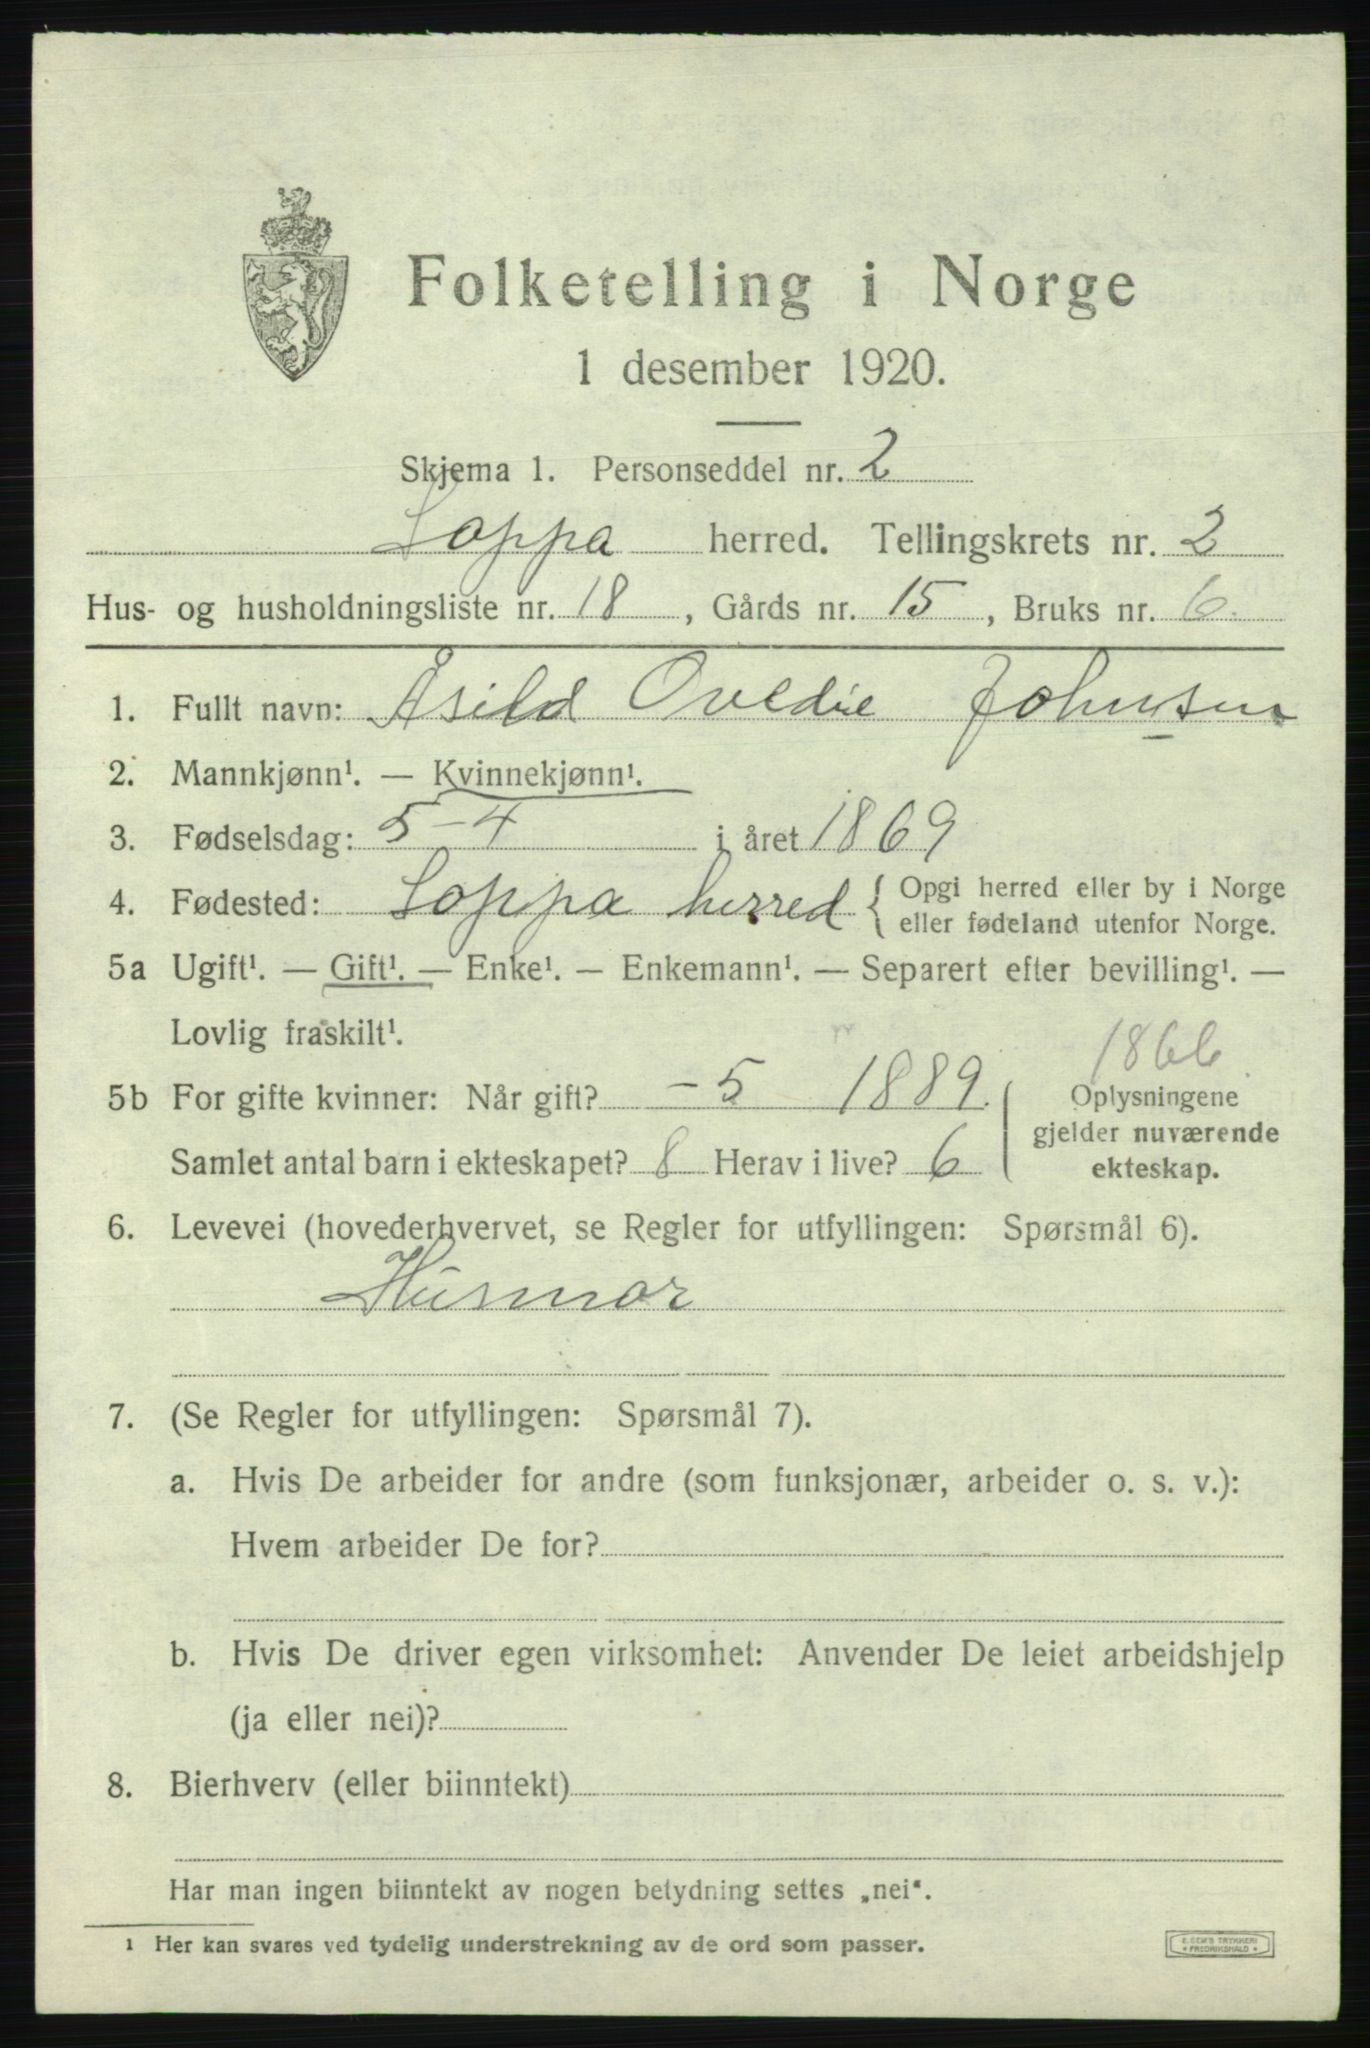 Folketelling i Norge
1 desember 1920.
Skjema 1. Personseddel nr. 2
Loppa herred. Tellingskrets nr. 2
Hus- og husholdningsliste nr. 18, Gårds nr. 15, Bruks nr. 6.
1. Fullt navn: Åsild Ovedie Johnsen
2. Mannkjønn¹. — Kvinnekjønn¹.
3. Fødselsdag: 5-4 i året 1869
4. Fødested: Loppa herred { Opgi herred eller by i Norge
eller fødeland utenfor Norge.
5a Ugift¹. — Gift¹. — Enke¹. — Enkemann¹. — Separert efter bevilling¹. —
Lovlig fraskilt¹.
1866
5b For gifte kvinner: Når gift? -5 1889. Oplysningene
gjelder nuværende
Samlet antal barn i ekteskapet? 8 Herav i live? 6 ekteskap.
6. Levevei (hovederhvervet, se Regler for utfyllingen: Spørsmål 6).
Husmor
7. (Se Regler for utfyllingen: Spørsmål 7).
a. Hvis De arbeider for andre (som funksjonær, arbeider o. s. v.):
Hvem arbeider De for?
b. Hvis De driver egen virksomhet: Anvender De leiet arbeidshjelp
(ja eller nei)?
8. Bierhverv (eller biinntekt)
Har man ingen biinntekt av nogen betydning settes „nei“.
¹ Her kan svares ved tydelig understrekning av de ord som passer.
E. SEM'S TRYKKERI
* FREDRIKSHALD *